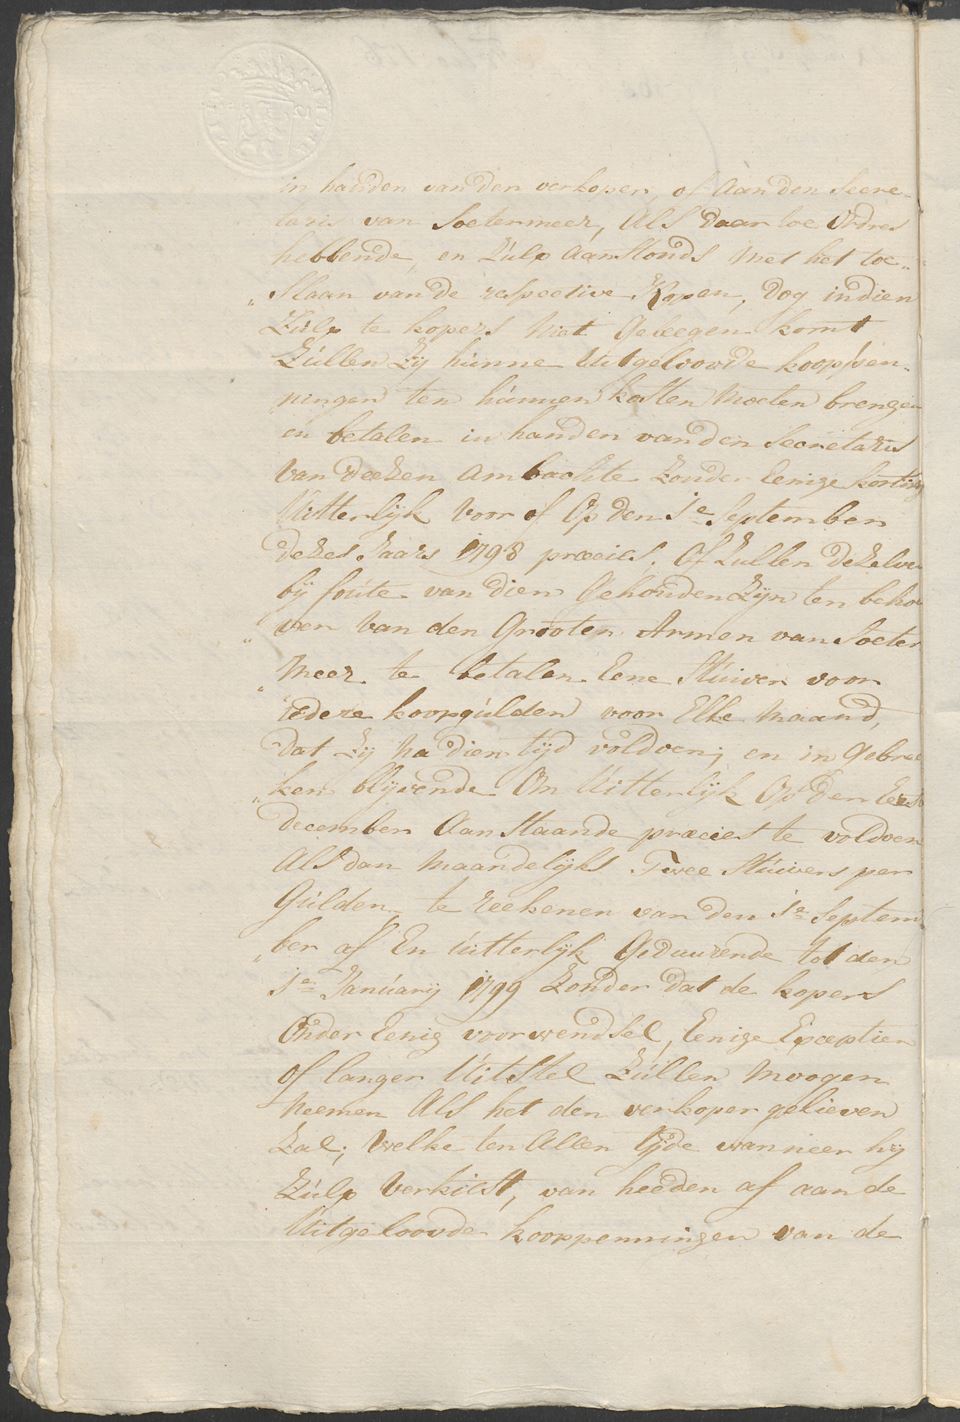 in handen van den verkoper, of Aan den Secre-
taris van Soetermeer, Als daar toe Ordres
hebbende, en Zulx Aanstonds Met het toe-
„Slaan van de respective Kopen, Dog indien
Zulx te kopers Niet Geleegen komt
Zúllen Zij húnne Uitgeloovde kooppen-
„ningen ten húnnen kosten Moeten brengen
en betalen in handen van den Secretaris
Van deezen Ambachte Zonder Eenige korting
Uitterlijk Voor of Op den 1e September
dezes Jaars 1798 præcies. Of Zullen dezelve
bij foúte van dien Gehouden Zijn ten beho-
„ven Van den Grooten Armen van Soeter
„Meer te betalen Eene Stúiver voor
iedere koopgúlden voor Elke Maand,
dat Zij Na dien tijd voldoen; en in Gebree
„ken blijvende Om Uitterlijk Op Den Eerst
December Aanstaande præcies te voldoen
Als dan Maandelijks Twee Stúivers per
Gúlden te Reekenen van den 1e Septem
„ber af En úitterlijk Geduurende tot den
1e Janúarij 1799 Zonder dat de kopers
Onder Eenig voorwendsel, Eenige Exceptien
of langer Uitstel Zúllen Moogen
Neemen Als het den verkoper gelieven
Zal; Welke ten Allen tijde wanneer hij
Zúlx Verkiest, van heeden af aan de
Uitgeloovde kooppenningen van de